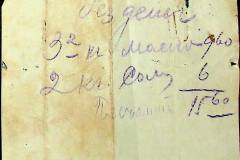 без денег
3² кг масло 9⁶⁰
2 кг Соли 6
15⁶⁰